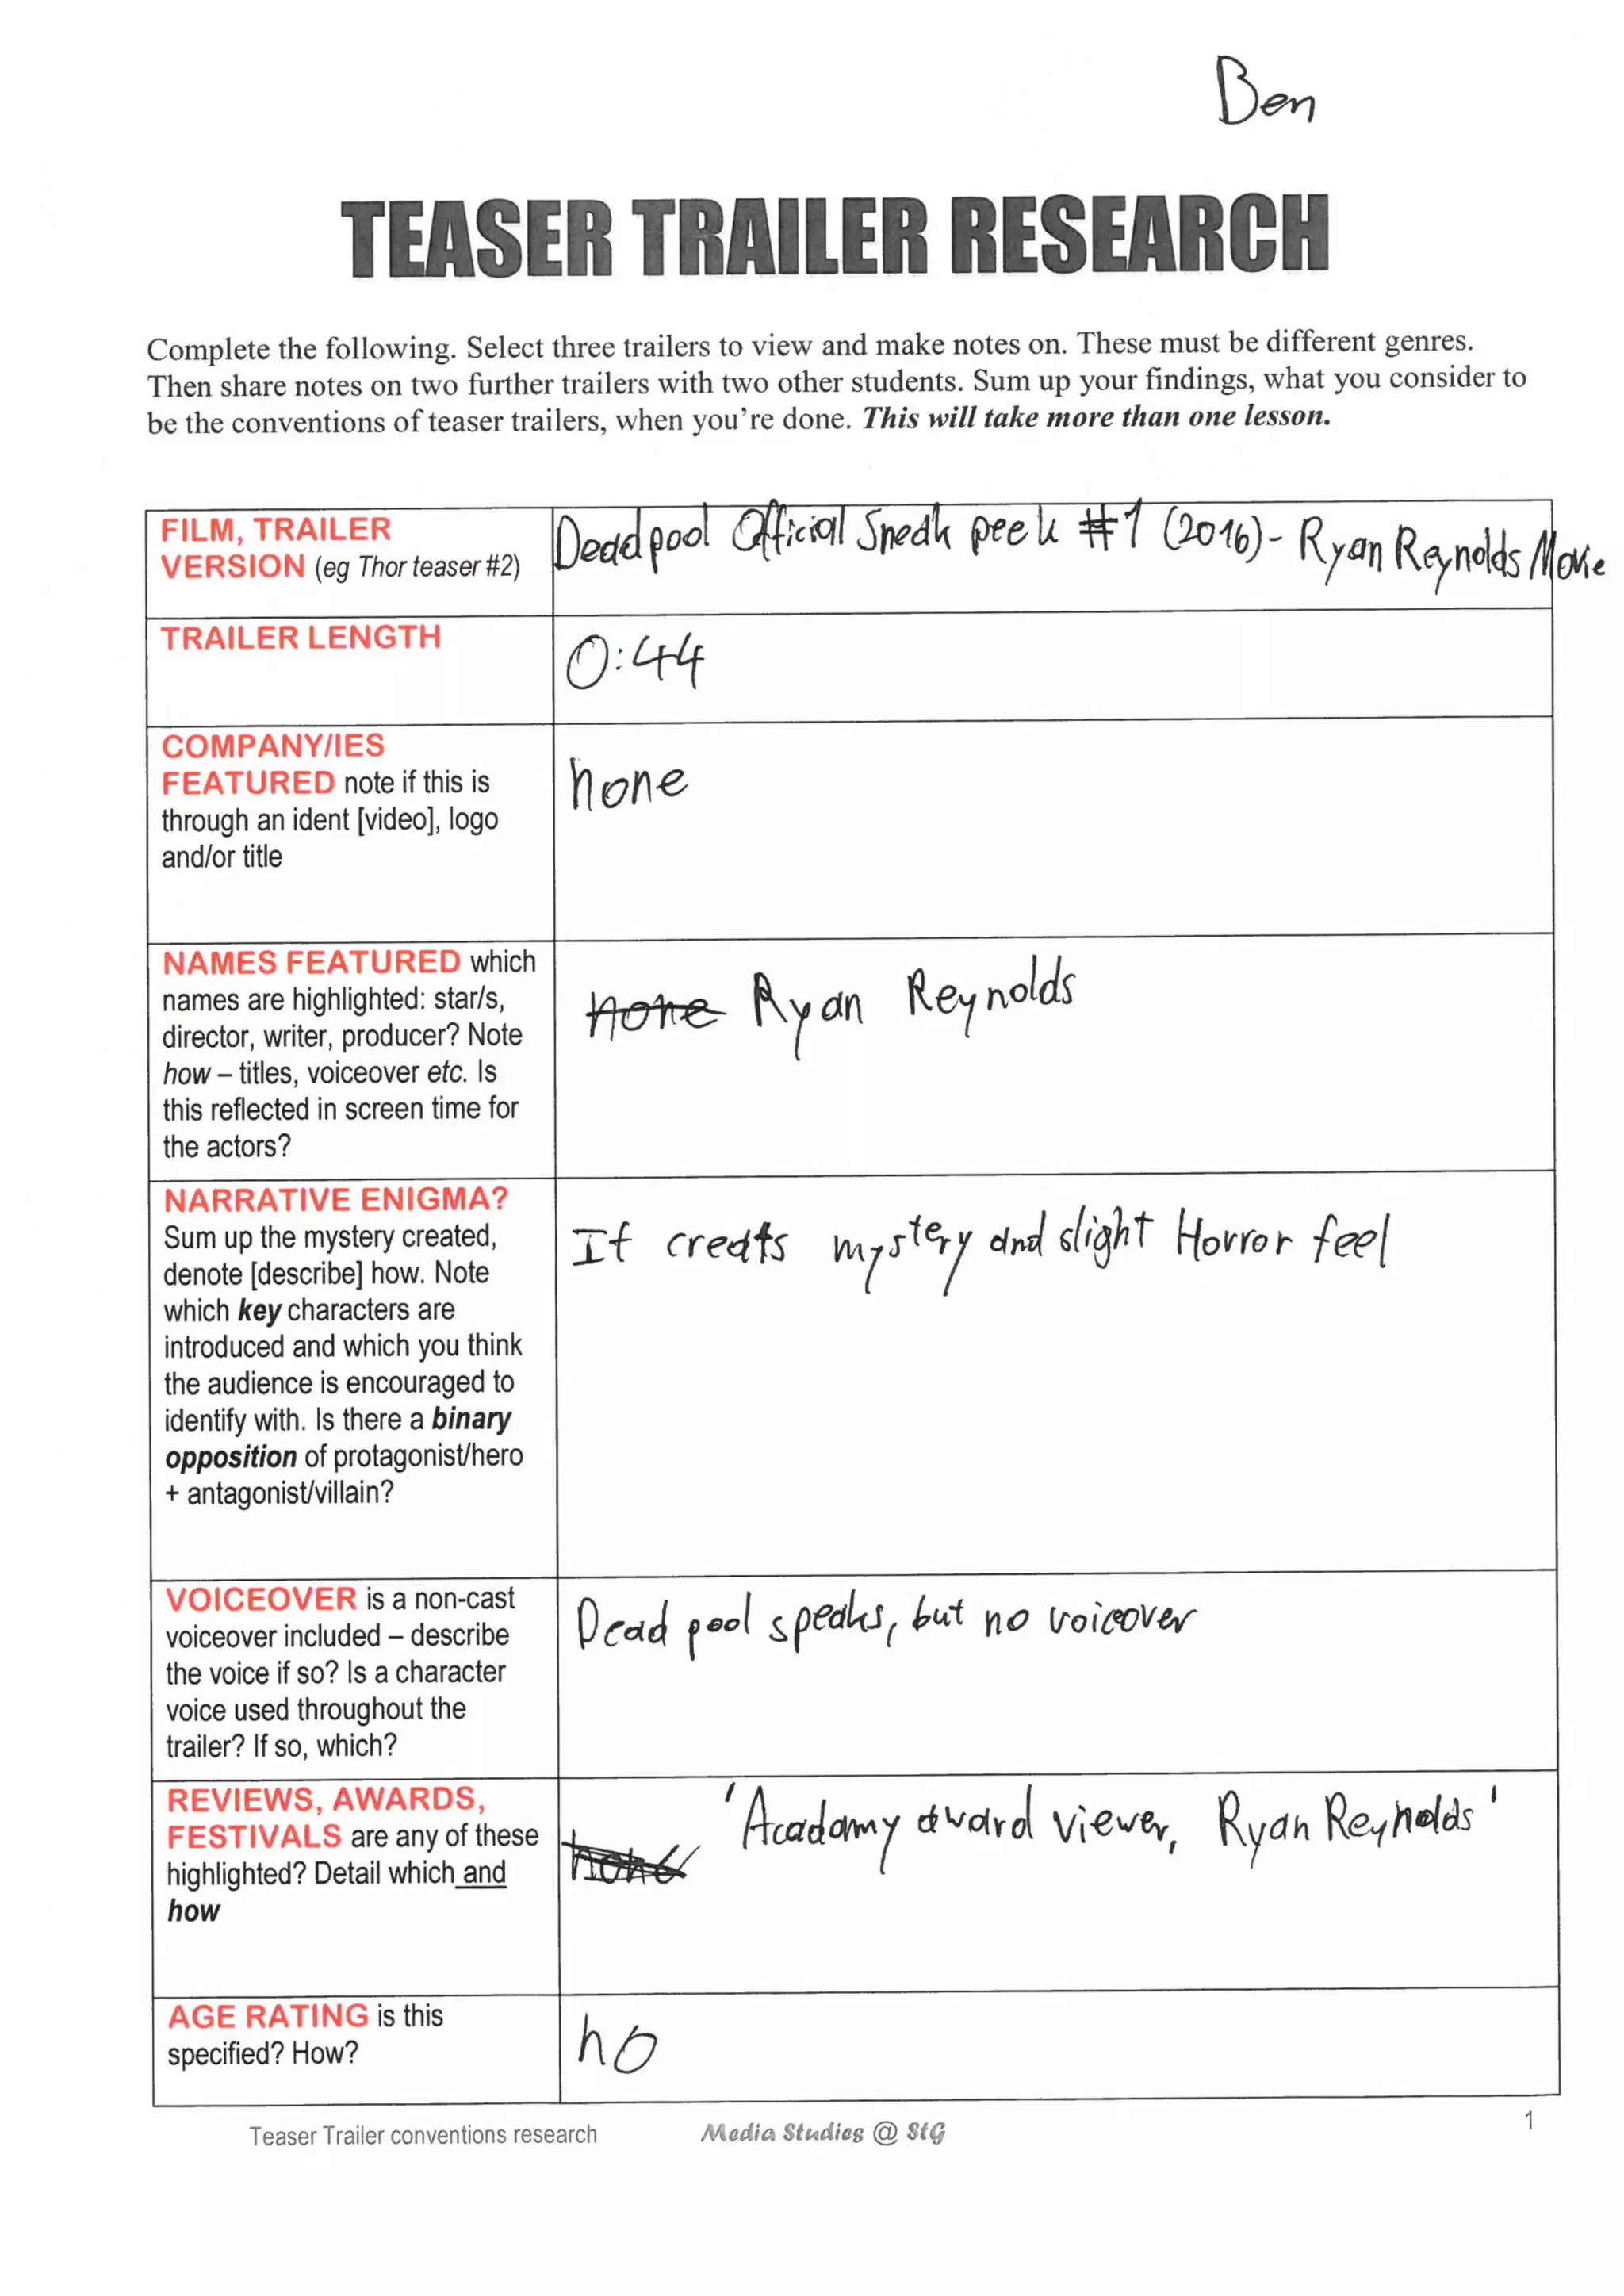 Ben
TEASER TRAILER RESEARCH
Complete the following. Select three trailers to view and make notes on. These must be different genres.
Then share notes on two further trailers with two other students. Sum up your findings, what you consider to
be the conventions of teaser trailers, when you're done. This will take more than one lesson.
FILM, TRAILER
VERSION (eg Thor teaser #2)
Deadpool Official Sneak peek #1 (2016) - Ryan Reynolds Movie
TRAILER LENGTH
0:44
COMPANY/IES
FEATURED note if this is
through an ident [video], logo
and/or title
none
NAMES FEATURED which
names are highlighted: star/s,
director, writer, producer? Note
how – titles, voiceover etc. Is
this reflected in screen time for
the actors?
none Ryan Reynolds
NARRATIVE ENIGMA?
Sum up the mystery created,
denote [describe] how. Note
which key characters are
introduced and which you think
the audience is encouraged to
identify with. Is there a binary
opposition of protagonist/hero
+ antagonist/villain?
It creats mystery and slight Horror feel
VOICEOVER is a non-cast
voiceover included – describe
the voice if so? Is a character
voice used throughout the
trailer? If so, which?
Dead pool speaks, but no voiceover
REVIEWS, AWARDS,
FESTIVALS are any of these
highlighted? Detail which and
how
none 'Acadamy award viewer, Ryan Reynolds'
AGE RATING is this
specified? How?
no
Teaser Trailer conventions research Media Studies @ StG 1